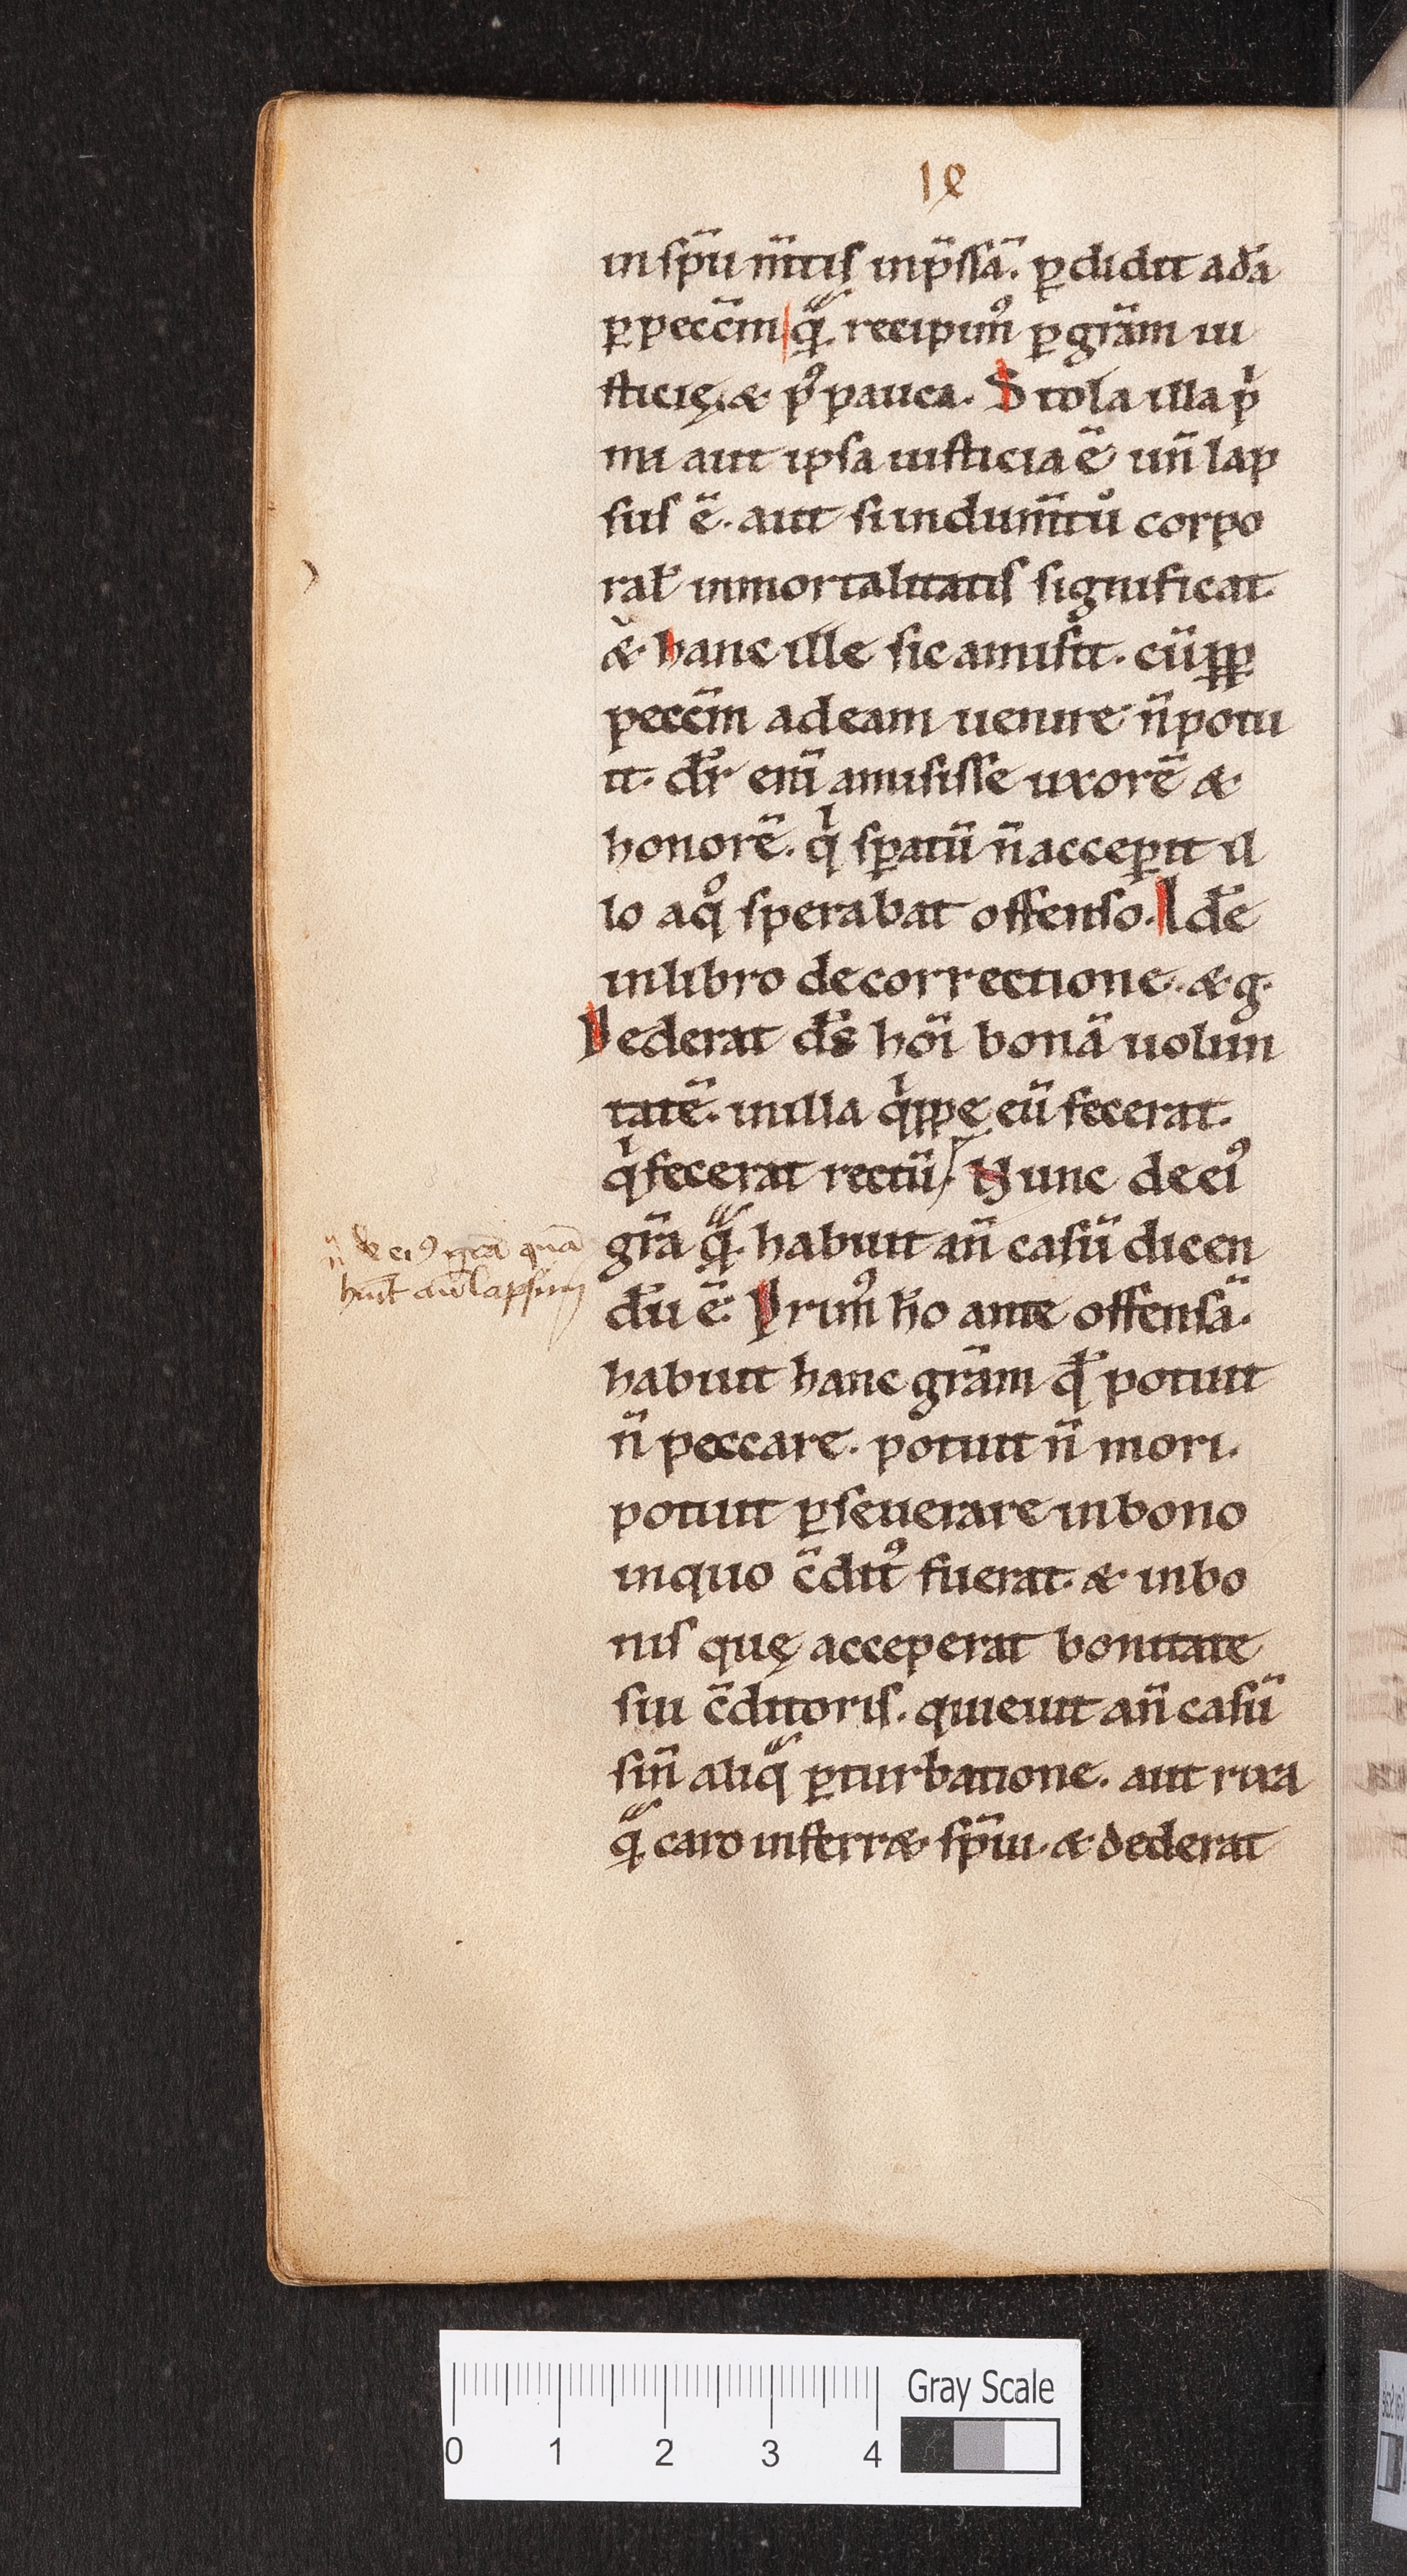 14
in sp̄u m̄tis inp̄ssā. ꝑdidit adā
ꝑ pecc̄m qᷓ. recipimꝰ ꝑ grām iu
sticię. & pꝰ pauca. Stola illa pͥ
ma aut ipsa iusticia ē un̄ lap
sus ē. aut si indum̄tū corpo
ral̵ inmortalitatis significat.
& hanc ille sic amisit. cū ꝓꝑ
pecc̄m ad eam uenire n̄ potu
it. dr̄ enī amisisse uxorē &
honorē. qͥ spatū n̄ acceꝑit il
lo a qͦ sperabat offenso. Idē
in libro de correctione. & g̅.
Dederat ds̄ hōi bonā uolun
tatē. in illa qͥppe eū fecerat.
qͥ fecerat rectū. Nunc de eiꝰ
grā qᷓ. habuit an̄ casū dicen
dū ē. Primꝰ ħo ante offensā.
habuit hanc grām qđ potuit
n̄ peccare. potuit n̄ mori.
potuit ꝑseuerare in bono
in quo c̄ditꝰ fuerat. & in bo
nis quę acceperat bonitate
sui c̄ditoris. quieuit an̄ casū
sin̄ aliqᷓ ꝑturbatione. aut rixa
qᷓ. caro inferr& sp̄ui. & dederat
n̄ de eiꝰ grā quā
huit an̄ lapsum
0 1 2 3 4
Gray Scale